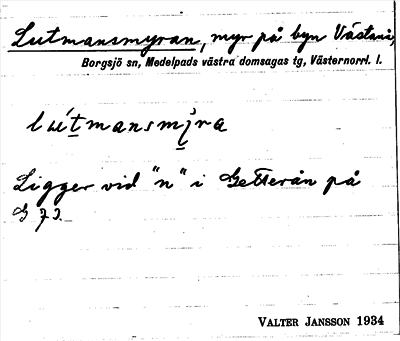 Lutmansmyran, myr på byn Västanå,
Borgsjö sn, Medelpads västra domsagas tg, Västernorrl. l.
Ligger vid "n" i Getterån på
VALTER JANSSON 1934